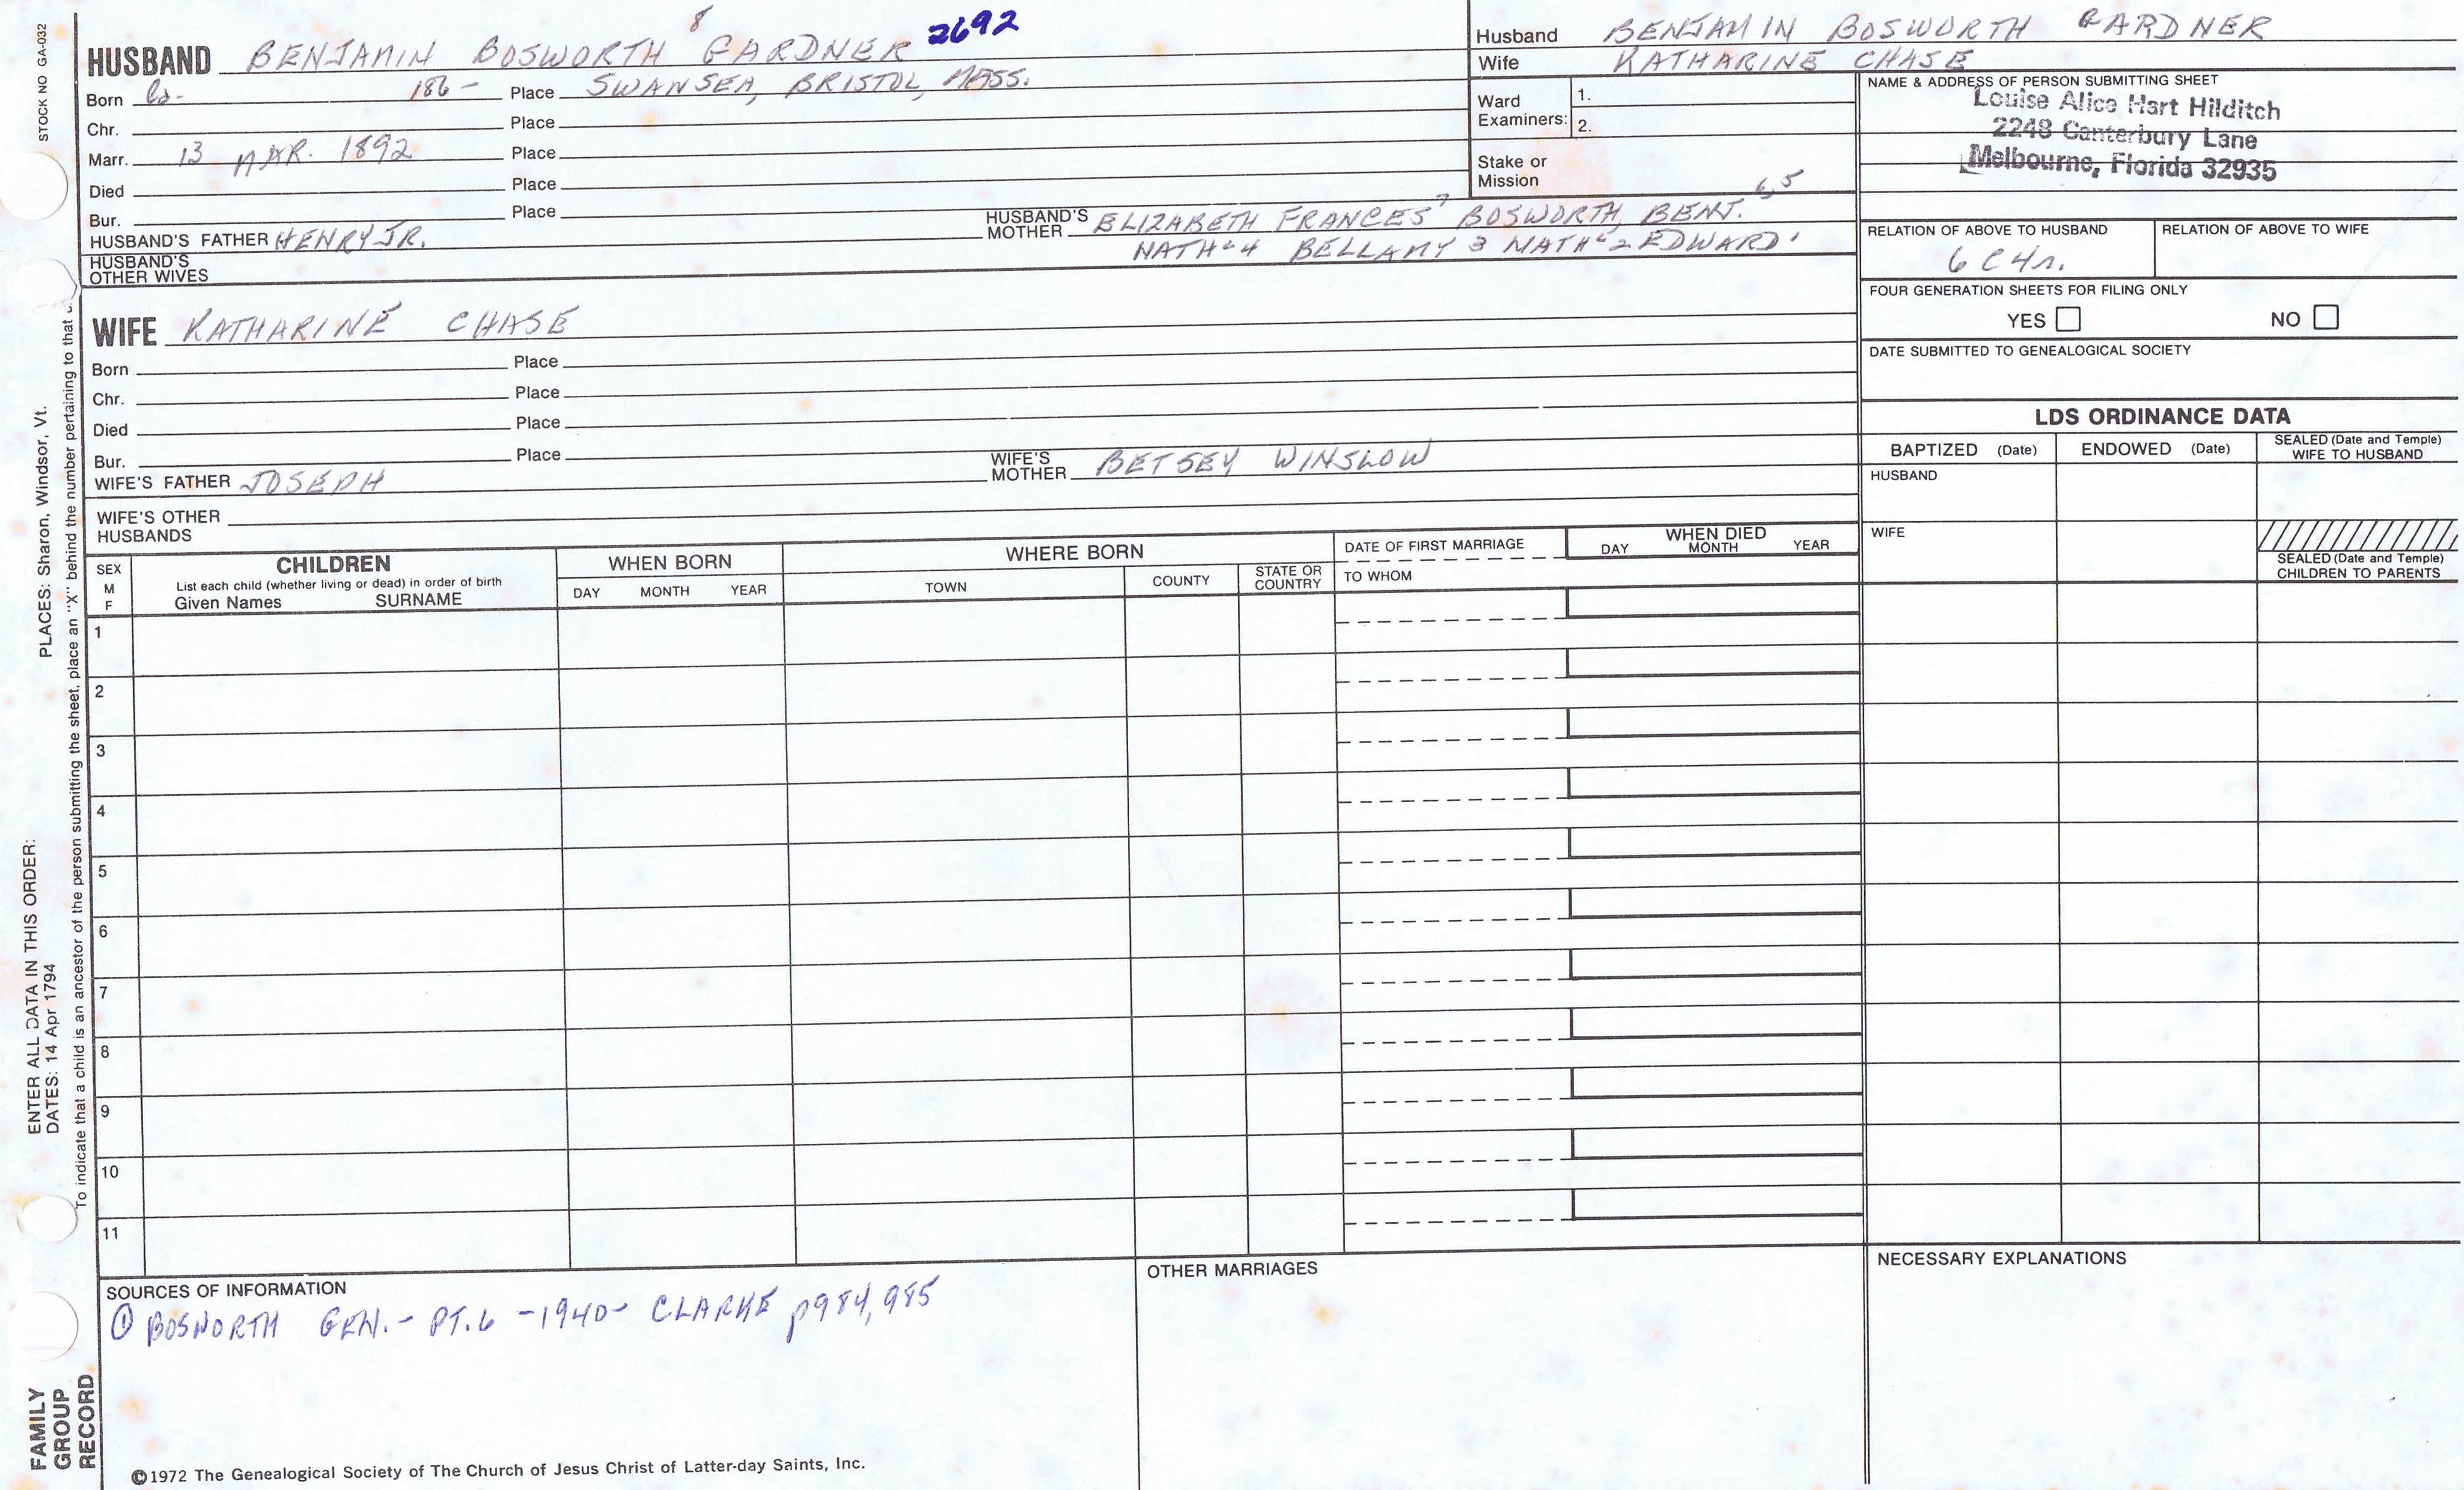 STOCK NO GA-032
HUSBAND BENJAMIN BOSWORTH 8 GARDNER 2692
Born Ca. 186- Place SWANSEA, BRISTOL, MASS.
Chr. Place
Marr. 13 MAR. 1892 Place
Died Place
Bur. Place
HUSBAND'S FATHER HENRY JR.
HUSBAND'S MOTHER ELIZABETH FRANCES 7 BOSWORTH, BENJ. 6,5
NATH'L 4 BELLAMY 3 NATH'L 2 EDWARD 1
HUSBAND'S OTHER WIVES
Husband BENJAMIN BOSWORTH GARDNER
Wife KATHARINE CHASE
Ward Examiners: 1.
2.
Stake or Mission
NAME & ADDRESS OF PERSON SUBMITTING SHEET
Louise Alice Hart Hilditch
2248 Canterbury Lane
Melbourne, Florida 32935
RELATION OF ABOVE TO HUSBAND RELATION OF ABOVE TO WIFE
6 C 4 r.
FOUR GENERATION SHEETS FOR FILING ONLY
YES NO
DATE SUBMITTED TO GENEALOGICAL SOCIETY
WIFE KATHARINE CHASE
Born Place
Chr. Place
Died Place
Bur. Place
WIFE'S FATHER JOSEPH
WIFE'S MOTHER BETSEY WINSLOW
WIFE'S OTHER HUSBANDS
LDS ORDINANCE DATA
BAPTIZED (Date) ENDOWED (Date) SEALED (Date and Temple) WIFE TO HUSBAND
HUSBAND
WIFE
SEALED (Date and Temple) CHILDREN TO PARENTS
SEX M F
CHILDREN
List each child (whether living or dead) in order of birth
Given Names SURNAME
WHEN BORN
DAY MONTH YEAR
WHERE BORN
TOWN COUNTY STATE OR COUNTRY
DATE OF FIRST MARRIAGE
TO WHOM
WHEN DIED
DAY MONTH YEAR
1
2
3
4
5
6
7
8
9
10
11
SOURCES OF INFORMATION
① BOSWORTH GEN. - PT. 6 - 1940 - CLARKE p984, 985
OTHER MARRIAGES
NECESSARY EXPLANATIONS
©1972 The Genealogical Society of The Church of Jesus Christ of Latter-day Saints, Inc.
FAMILY
GROUP
RECORD
ENTER ALL DATA IN THIS ORDER:
DATES: 14 Apr 1794
PLACES: Sharon, Windsor, Vt.
To indicate that a child is an ancestor of the person submitting the sheet, place an "X" behind the number pertaining to that